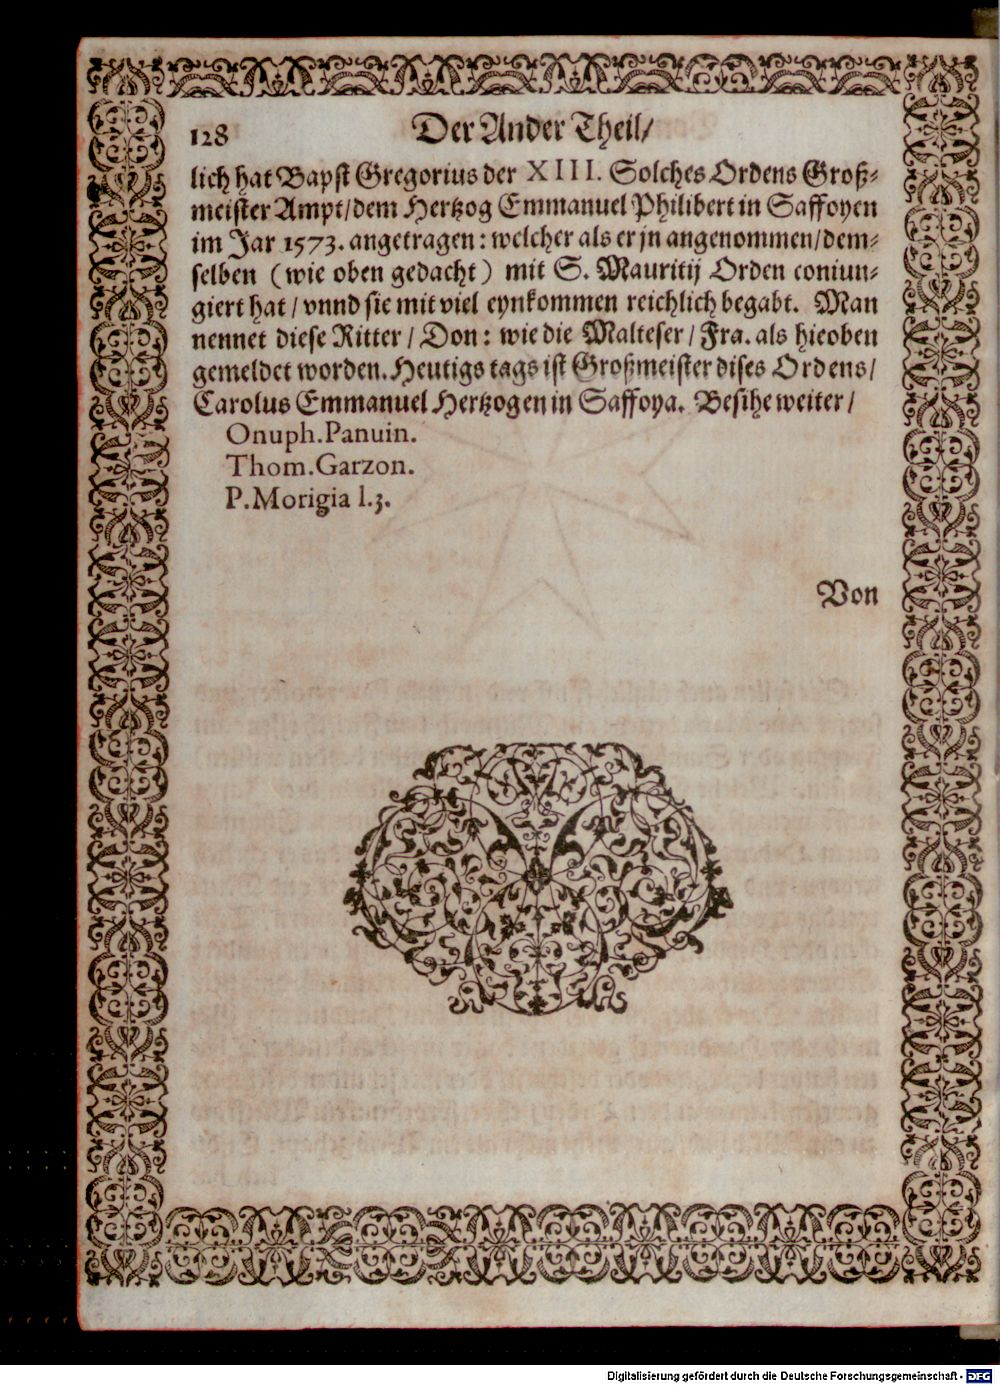 128
Der Ander Theil/
lich hat Bapst Gregorius der XIII. Solches Ordens Groß-
meister Ampt/dem Hertzog Emmanuel Philibert in Saffoyen
im Jar 1573. angetragen: welcher als er jn angenommen/dem-
selben (wie oben gedacht) mit S. Mauritij Orden coniun-
giert hat/ vnnd sie mit viel eynkommen reichlich begabt. Man
nennet diese Ritter/ Don: wie die Malteser/ Fra. als hieoben
gemeldet worden. Heutigs tags ist Großmeister dises Ordens/
Carolus Emmanuel Hertzogen in Saffoya. Besihe weiter/
Onuph.Panuin.
Thom.Garzon.
P.Morigia l.3.
Von
Digitalisierung gefördert durch die Deutsche Forschungsgemeinschaft - DFG